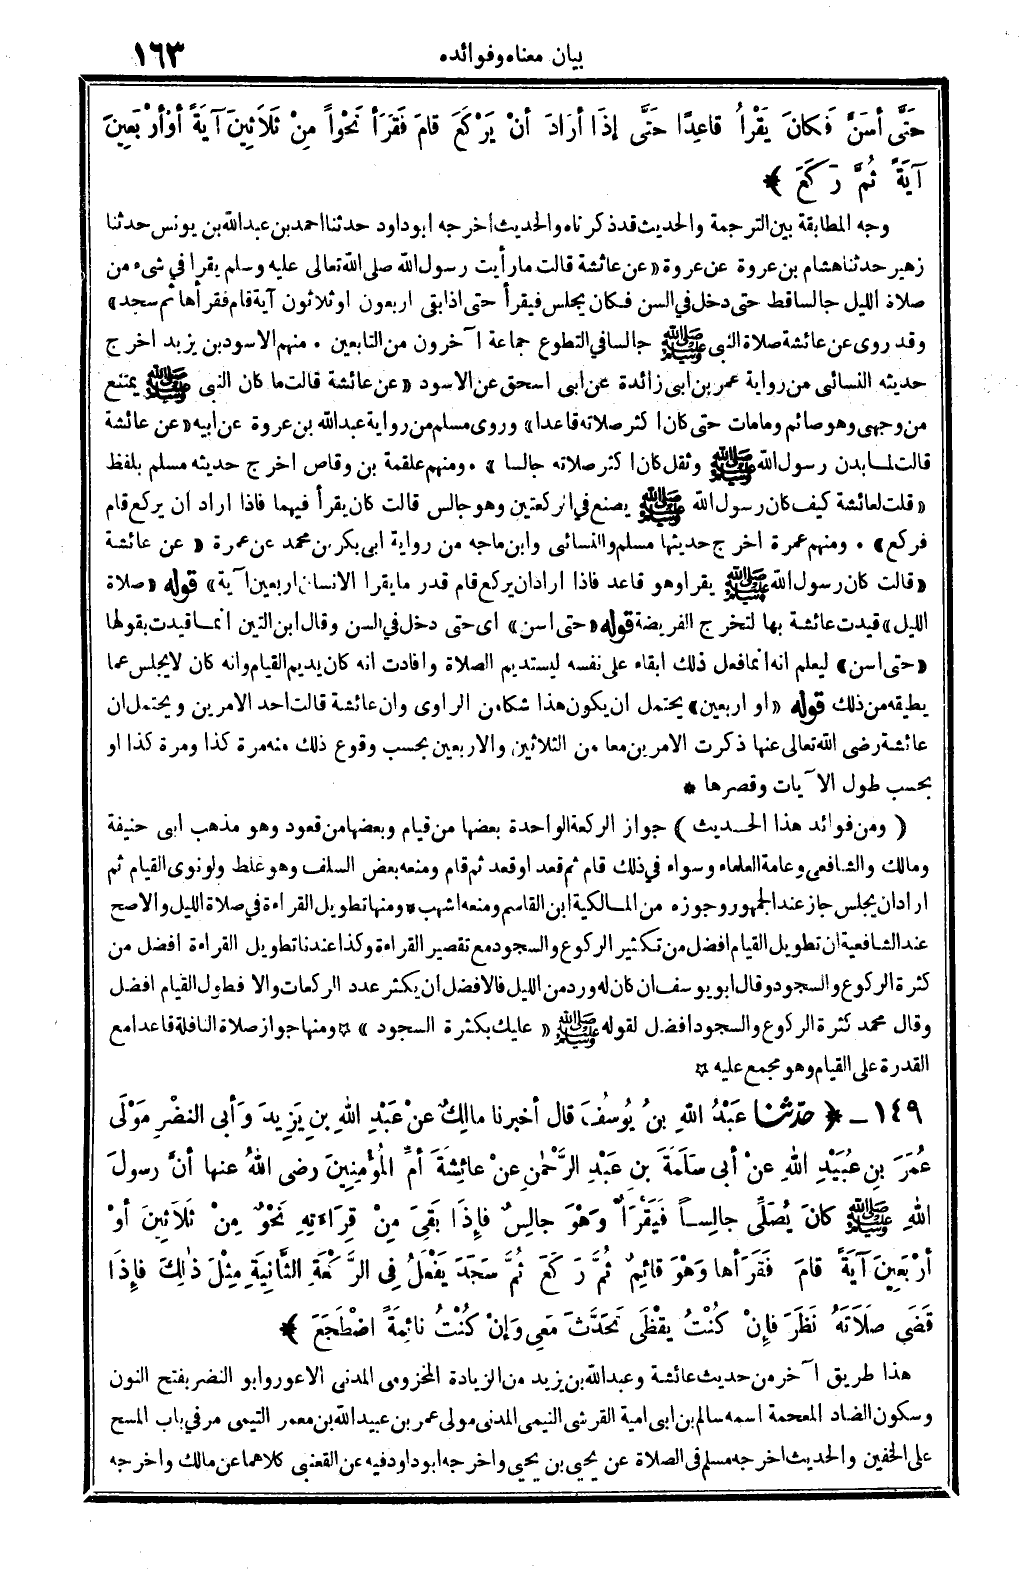 بيان معناه وفوائده ١٦٣
حَتَّى أسَنَّ فَكانَ يَقْرأُ قاعِدًا حَتَّى إذَا أرَادَ أنْ يَرْكَعَ قامَ فَقَرَأ نَحْواً مِنْ ثَلَاثِينَ آيَةً أوْ أرْبَعِينَ
آيَةً ثُمَّ رَكَعَ ﴾
وجه المطابقة بين الترجمة والحديث قد ذكرناه والحديث اخرجه ابو داود حدثنا احمد بن عبد الله بن يونس حدثنا
زهير حدثنا هشام بن عروة عن عروة «عن عائشة قالت ما رأيت رسول الله صلى الله تعالى عليه وسلم يقرا في شىء من
صلاة الليل جالسا قط حتى دخل في السن فكان يجلس فيقرأ حتى اذا بقى اربعون او ثلاثون آية قام فقرأها ثم سجد»
وقد روى عن عائشة صلاة النبى ﷺ جالسا في التطوع جماعة آخرون من التابعين . منهم الاسود بن يزيد اخرج
حديثه النسائى من رواية عمر بن ابى زائدة عن ابى اسحق عن الاسود «عن عائشة قالت ما كان النبى ﷺ يمتنع
من وجهى وهو صائم وما مات حتى كان اكثر صلاته قاعدا» وروى مسلم من رواية عبد الله بن عروة عن ابيه «عن عائشة
قالت لما بدن رسول الله ﷺ وثقل كان اكثر صلاته جالسا » . ومنهم علقمة بن وقاص اخرج حديثه مسلم بلفظ
«قلت لعائشة كيف كان رسول الله ﷺ يصنع في الركعتين وهو جالس قالت كان يقرأ فيهما فاذا اراد ان يركع قام
فركع» . ومنهم عمرة اخرج حديثها مسلم والنسائى وابن ماجه من رواية ابى بكر بن محمد عن عمرة « عن عائشة
«قالت كان رسول الله ﷺ يقرا وهو قاعد فاذا اراد ان يركع قام قدر ما يقرا الانسان اربعين آية» قوله «صلاة
الليل» قيدت عائشة بها لتخرج الفريضة قوله «حتى اسن» اى حتى دخل في السن وقال ابن التين انما قيدت بقولها
«حتى اسن» ليعلم انه انما فعل ذلك ابقاء على نفسه ليستديم الصلاة وافادت انه كان يديم القيام وانه كان لا يجلس عما
يطيقه من ذلك قوله «او اربعين» يحتمل ان يكون هذا شكا من الراوى وان عائشة قالت احد الامرين ويحتمل ان
عائشة رضى الله تعالى عنها ذكرت الامرين معا من الثلاثين والاربعين بحسب وقوع ذلك منه مرة كذا ومرة كذا او
بحسب طول الآيات وقصرها *
( ومن فوائد هذا الحديث ) جواز الركعة الواحدة بعضها من قيام وبعضها من قعود وهو مذهب ابى حنيفة
ومالك والشافعى وعامة العلماء وسواء في ذلك قام ثم قعد او قعد ثم قام ومنعه بعض السلف وهو غلط ولو نوى القيام ثم
اراد ان يجلس جاز عند الجمهور وجوزه من المالكية ابن القاسم ومنعه اشهب * ومنها تطويل القراءة في صلاة الليل والاصح
عند الشافعية ان تطويل القيام افضل من تكثير الركوع والسجود مع تقصير القراءة وكذا عندنا تطويل القراءة افضل من
كثرة الركوع والسجود وقال ابو يوسف ان كان له ورد من الليل فالافضل ان يكثر عدد الركعات والا فطول القيام افضل
وقال محمد كثرة الركوع والسجود افضل لقوله ﷺ « عليك بكثرة السجود » * ومنها جواز صلاة النافلة قاعدا مع
القدرة على القيام وهو مجمع عليه *
١٤٩ ـ ﴿ حدّثنا عَبْدُ اللهِ بنُ يُوسُفَ قال أخبرنا مالِكٌ عنْ عَبْدِ اللهِ بنِ يَزِيدَ وَأبى النضْرِ مَوْلَى
عُمَرَ بنِ عُبَيْدِ اللهِ عنْ أبى سَلَمَةَ بنِ عَبْدِ الرَّحْمٰنِ عنْ عائِشَةَ أمِّ المُؤْمِنِينَ رضى اللهُ عنها أنَّ رسولَ
اللهِ ﷺ كانَ يُصَلِّى جالِساً فَيَقْرَأُ وَهْوَ جالِسٌ فإِذَا بَقِىَ مِنْ قِرَاءَتِهِ نَحْوٌ مِنْ ثَلَاثِينَ أوْ
أرْبَعِينَ آيَةً قامَ فَقَرَأها وَهْوَ قائِمٌ ثُمَّ رَكَعَ ثُمَّ سَجَدَ يَفْعَلُ فِى الرَّكْعَةِ الثَّانِيَةِ مِثْلَ ذٰلِكَ فإِذَا
قَضَى صَلَاتَهُ نَظَرَ فإِنْ كُنْتُ يَقْظَى تَحَدَّثَ مَعِى وَإنْ كُنْتُ نائِمَةً اضْطَجَعَ ﴾
هذا طريق آخر من حديث عائشة وعبد الله بن يزيد من الزيادة المخزومى المدنى الاعور وابو النضر بفتح النون
وسكون الضاد المعجمة اسمه سالم بن ابى امية القرشى التيمى المدنى مولى عمر بن عبيد الله بن معمر التيمى مر في باب المسح
على الخفين والحديث اخرجه مسلم فى الصلاة عن يحيى بن يحيى واخرجه ابو داود فيه عن القعنبى كلاهما عن مالك واخرجه